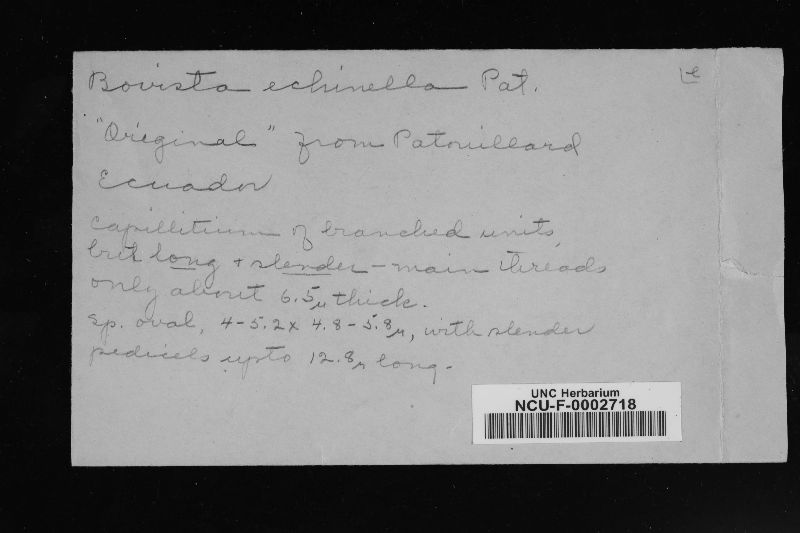 Bovista echinella Pat.
le
"Original" from Patouillard
Ecuador
Capillitium of branched units,
but long + slender - main threads
only about 6.5μ thick.
sp. oval, 4-5.2 x 4.8-5.8μ, with slender
pedicels upto 12.8μ long.
UNC Herbarium
NCU-F-0002718